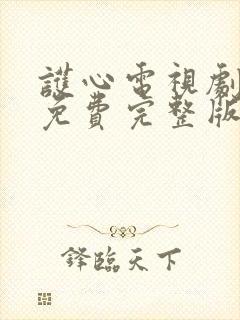 護心電視劇
免費完整版
鋒臨天下